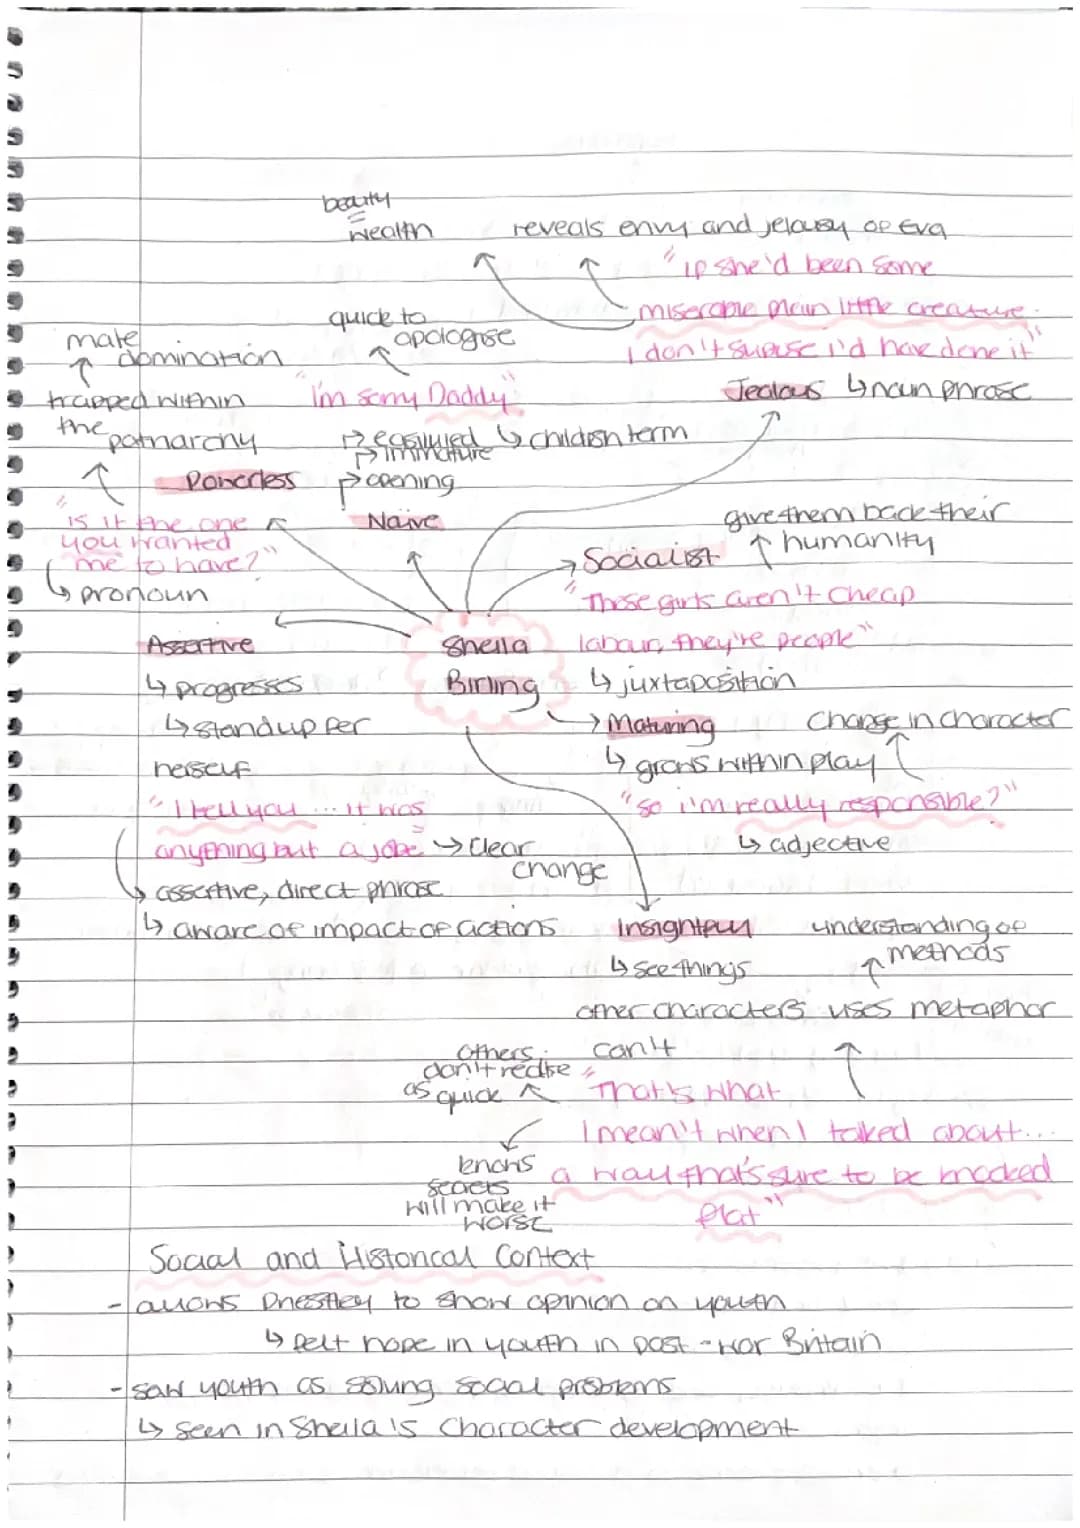 beauty
=
wealth
reveals envy and jelousy of Eva
"if she'd been some
miserable plain little creature.
I don't supuse i'd have done it"
Jealous ↳ noun phrase
quick to
apologise
"I'm sorry Daddy"
↳ childish term
→ easily led
→ immature
→ opening
Naive
male
domination
trapped within
the patriarchy
Powerless
"is it the one
you wanted
me to have?"
↳ pronoun
give them back their
humanity
Socialist
"These girls aren't cheap
labour, they're people"
↳ juxtaposition
Sheila
Birling
Assertive
↳ progresses
↳ stand up for
herself
"I tell you ... it was
anything but a joke → clear
change
↳ assertive, direct phrase
↳ aware of impact of actions
→ Maturing
change in character
↳ grows within play
"so i'm really responsible?"
↳ adjective
Insightful
↳ see things
other characters
can't
understanding of
methods
uses metaphor
others
don't realise
as quick
"That's what
I mean't when I talked about...
a wall that's sure to be knocked
flat"
knows
secrets
will make it
worse
Social and Historical Context
- allows Priestley to show opinion on youth
↳ felt hope in youth in post-war Britain
- saw youth as solving social problems
↳ seen in Sheila's character development